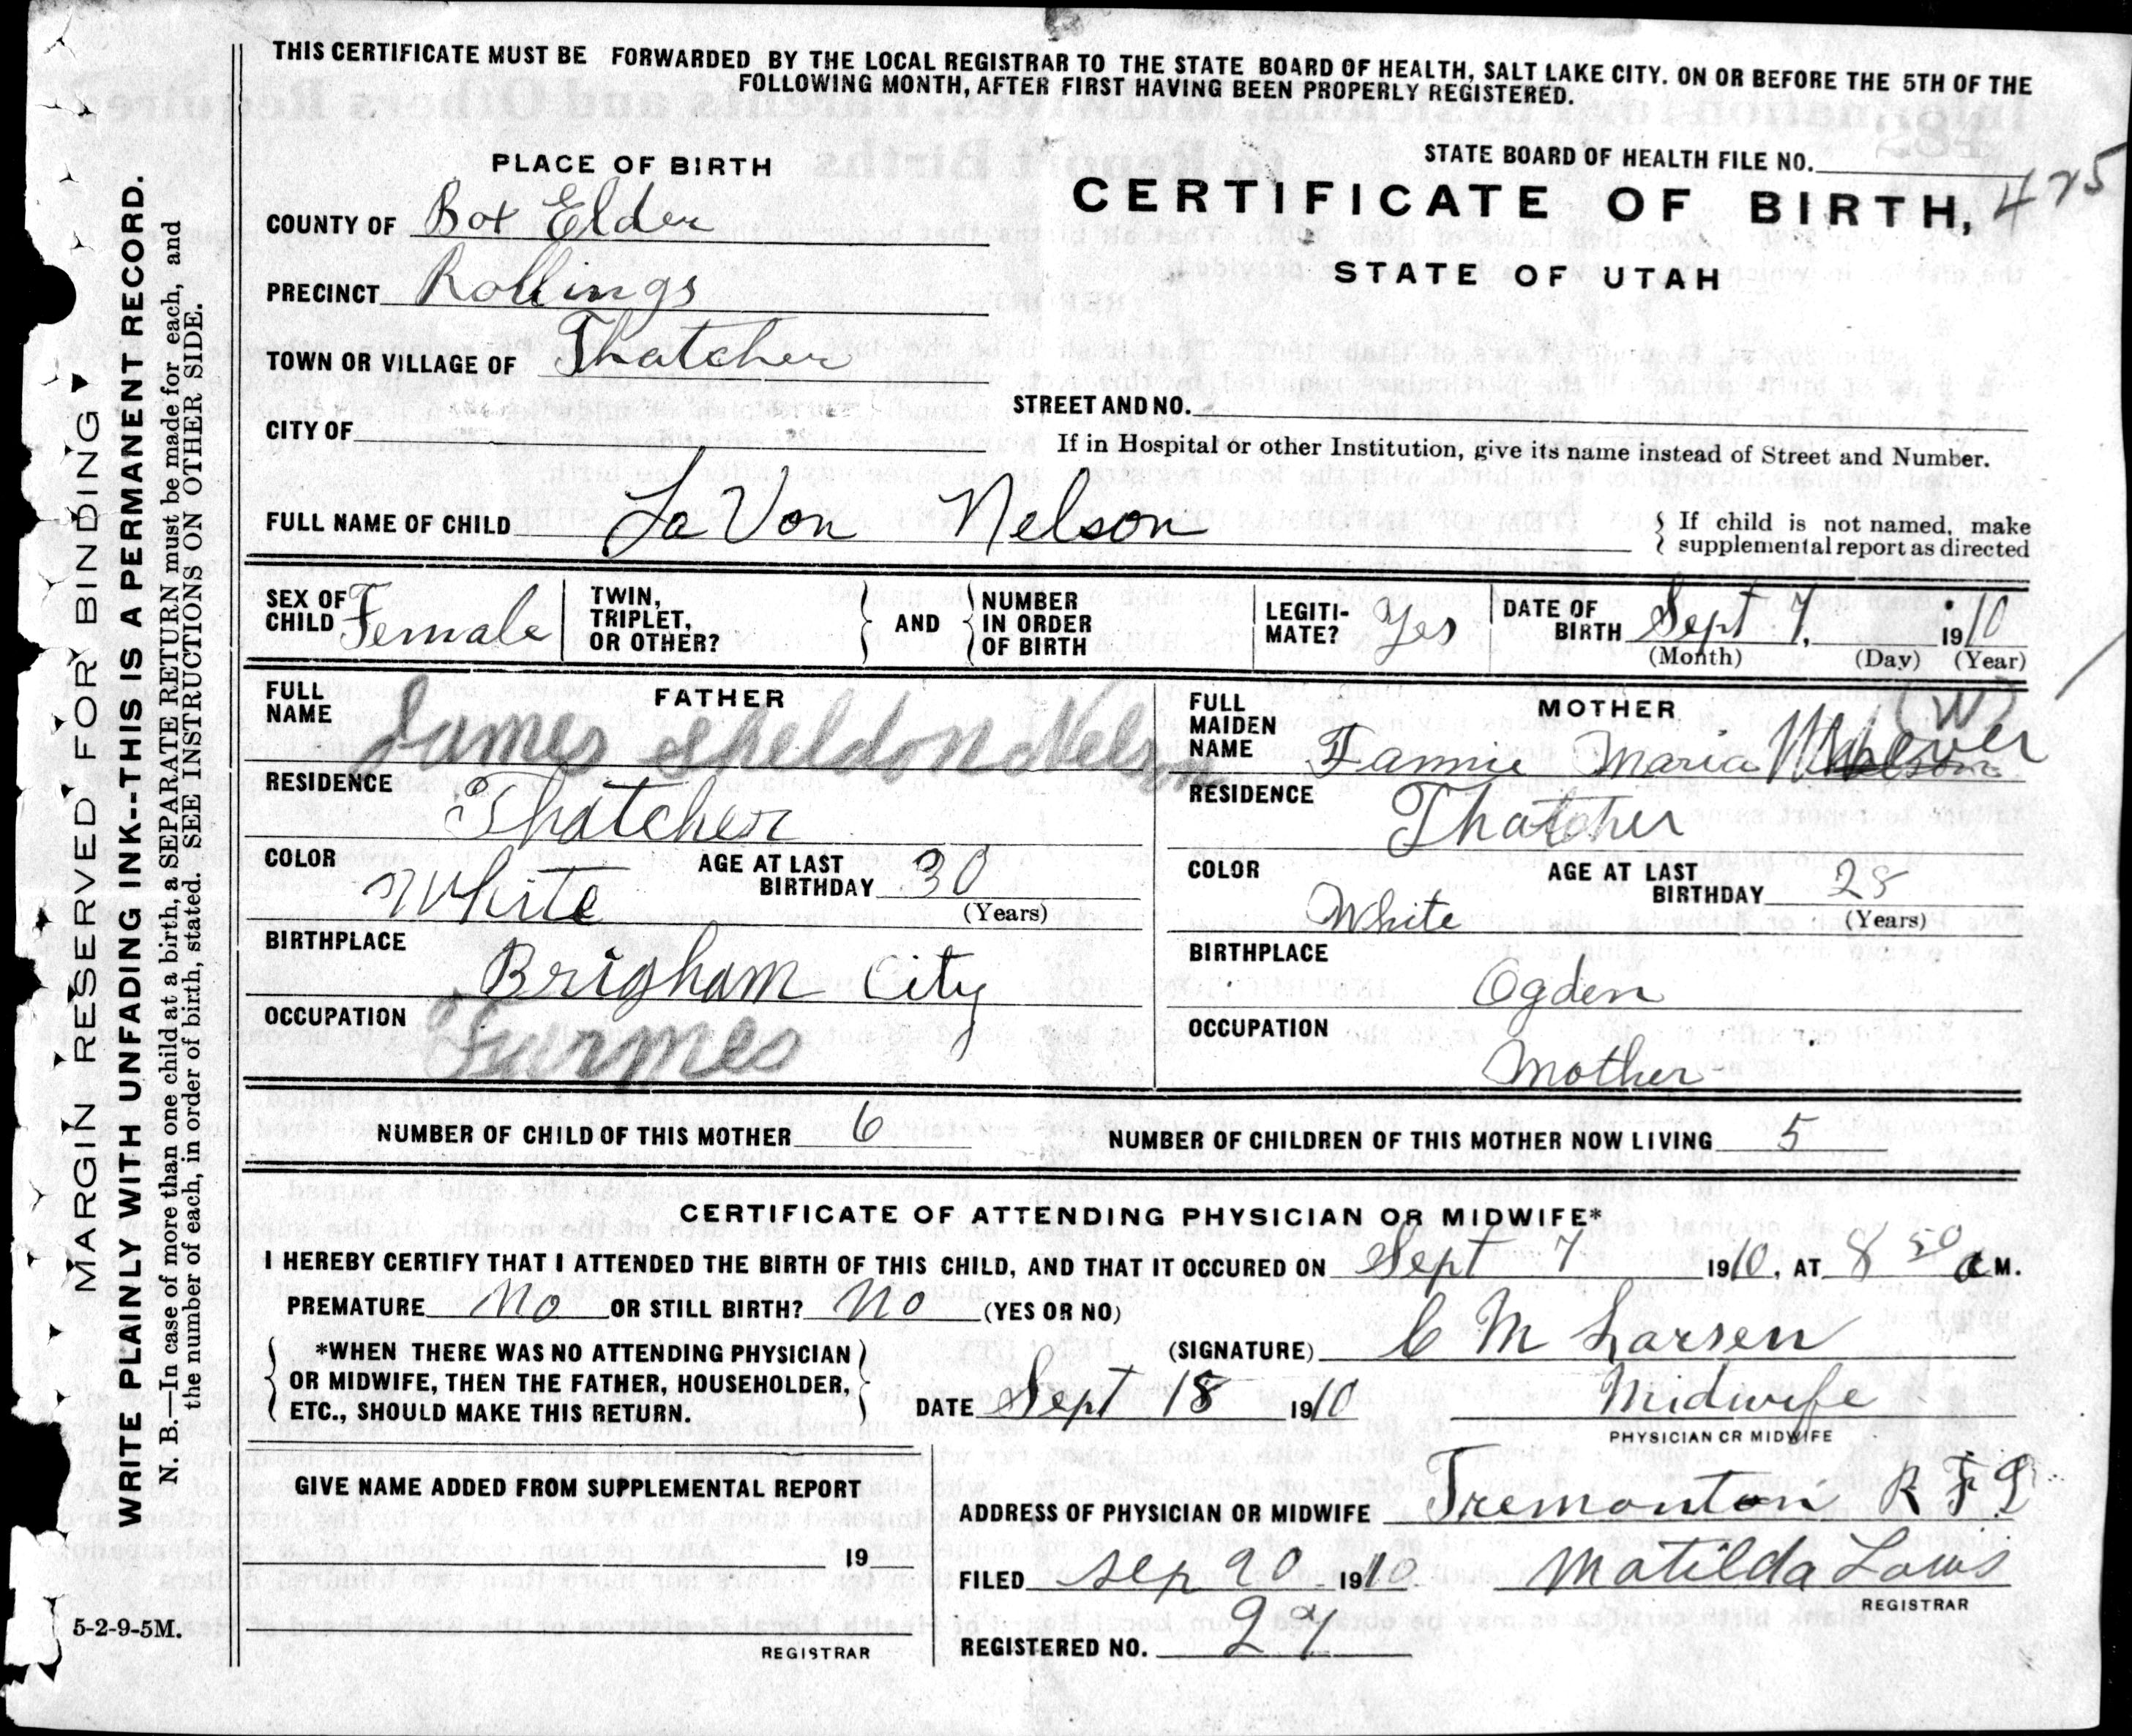 THIS CERTIFICATE MUST BE FORWARDED BY THE LOCAL REGISTRAR TO THE STATE BOARD OF HEALTH, SALT LAKE CITY. ON OR BEFORE THE 5TH OF THE
FOLLOWING MONTH, AFTER FIRST HAVING BEEN PROPERLY REGISTERED.
PLACE OF BIRTH
STATE BOARD OF HEALTH FILE NO.
CERTIFICATE OF BIRTH, 475
STATE OF UTAH
COUNTY OF Box Elder
PRECINCT Rollings
TOWN OR VILLAGE OF Thatcher
STREET AND NO.
CITY OF
If in Hospital or other Institution, give its name instead of Street and Number.
FULL NAME OF CHILD La Von Nelson
If child is not named, make
supplemental report as directed
SEX OF CHILD Female
TWIN, TRIPLET, OR OTHER? AND NUMBER IN ORDER OF BIRTH
LEGITI-MATE? Yes
DATE OF BIRTH Sept 7, 1910
(Month) (Day) (Year)
FATHER
FULL NAME James Sheldon Nelson
RESIDENCE Thatcher
COLOR White AGE AT LAST BIRTHDAY 30
(Years)
BIRTHPLACE Brigham City
OCCUPATION Farmer
MOTHER
(W)
FULL MAIDEN NAME Fannie Maria
RESIDENCE Thatcher
COLOR White AGE AT LAST BIRTHDAY 28
(Years)
BIRTHPLACE Ogden
OCCUPATION Mother
NUMBER OF CHILD OF THIS MOTHER 6 NUMBER OF CHILDREN OF THIS MOTHER NOW LIVING 5
CERTIFICATE OF ATTENDING PHYSICIAN OR MIDWIFE*
I HEREBY CERTIFY THAT I ATTENDED THE BIRTH OF THIS CHILD, AND THAT IT OCCURED ON Sept 7 1910, AT 8 50 a M.
PREMATURE No OR STILL BIRTH? No (YES OR NO)
*WHEN THERE WAS NO ATTENDING PHYSICIAN
OR MIDWIFE, THEN THE FATHER, HOUSEHOLDER,
ETC., SHOULD MAKE THIS RETURN.
(SIGNATURE) C M Larsen
DATE Sept 18 1910 Midwife
PHYSICIAN OR MIDWIFE
GIVE NAME ADDED FROM SUPPLEMENTAL REPORT
19
REGISTRAR
ADDRESS OF PHYSICIAN OR MIDWIFE Tremonton R F D
FILED Sep 20 1910 Matilda
REGISTRAR
REGISTERED NO.
5-2-9-5M.
MARGIN RESERVED FOR BINDING
WRITE PLAINLY WITH UNFADING INK--THIS IS A PERMANENT RECORD.
N. B.—In case of more than one child at a birth, a SEPARATE RETURN must be made for each, and
the number of each, in order of birth, stated. SEE INSTRUCTIONS ON OTHER SIDE.